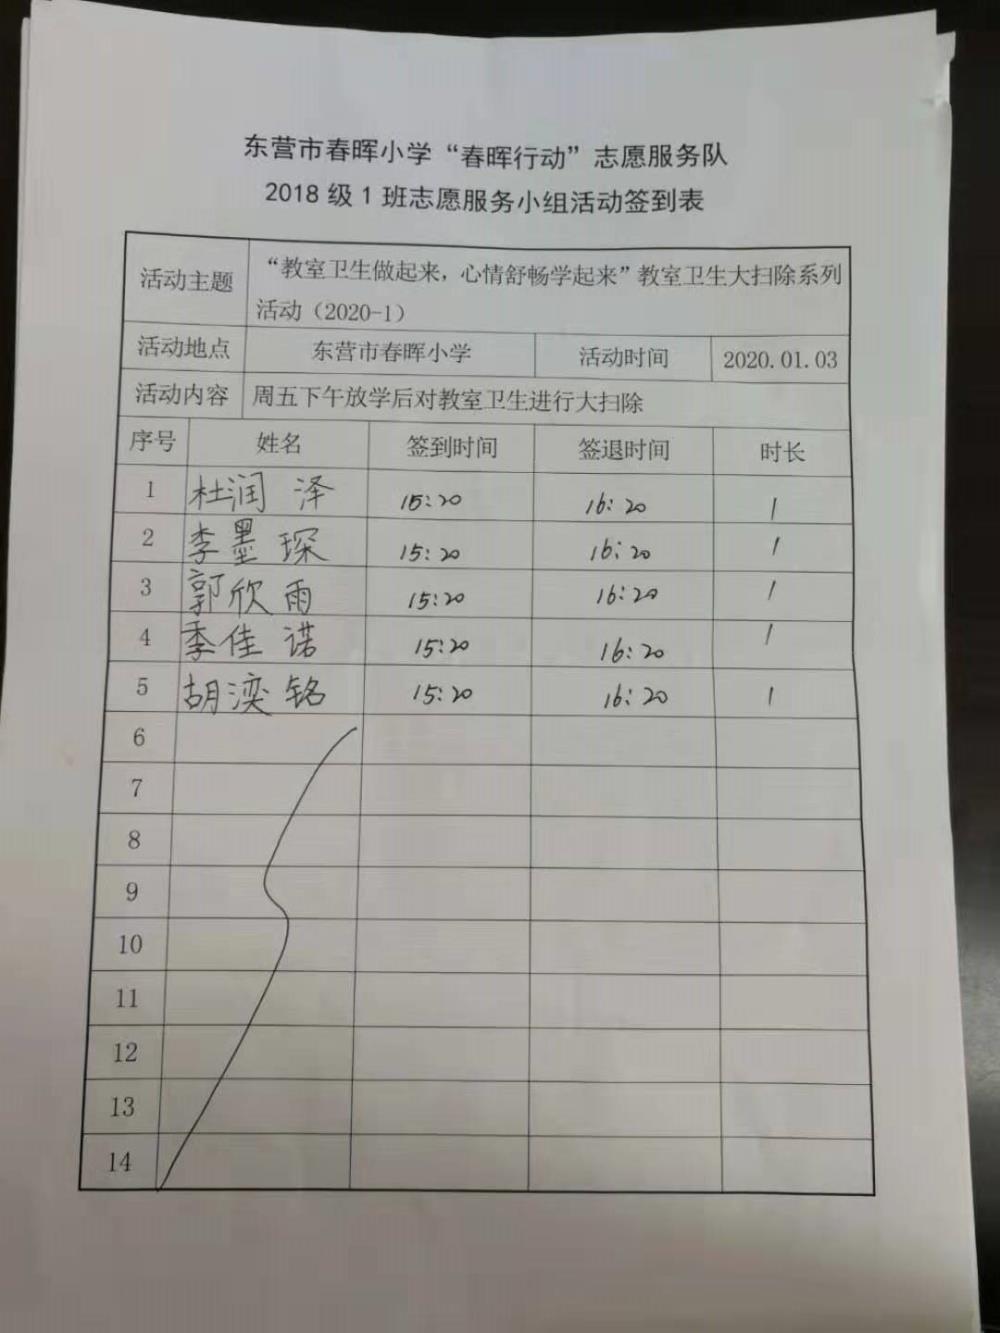 东营市春晖小学“春晖行动”志愿服务队
2018 级 1 班志愿服务小组活动签到表
活动主题 “教室卫生做起来，心情舒畅学起来”教室卫生大扫除系列
活动（2020-1）
活动地点 东营市春晖小学 活动时间 2020.01.03
活动内容 周五下午放学后对教室卫生进行大扫除
序号 姓名 签到时间 签退时间 时长
1 杜润泽 15:20 16:20 1
2 李墨琛 15:20 16:20 1
3 郭欣雨 15:20 16:20 1
4 季佳诺 15:20 16:20 1
5 胡滦铭 15:20 16:20 1
6
7
8
9
10
11
12
13
14